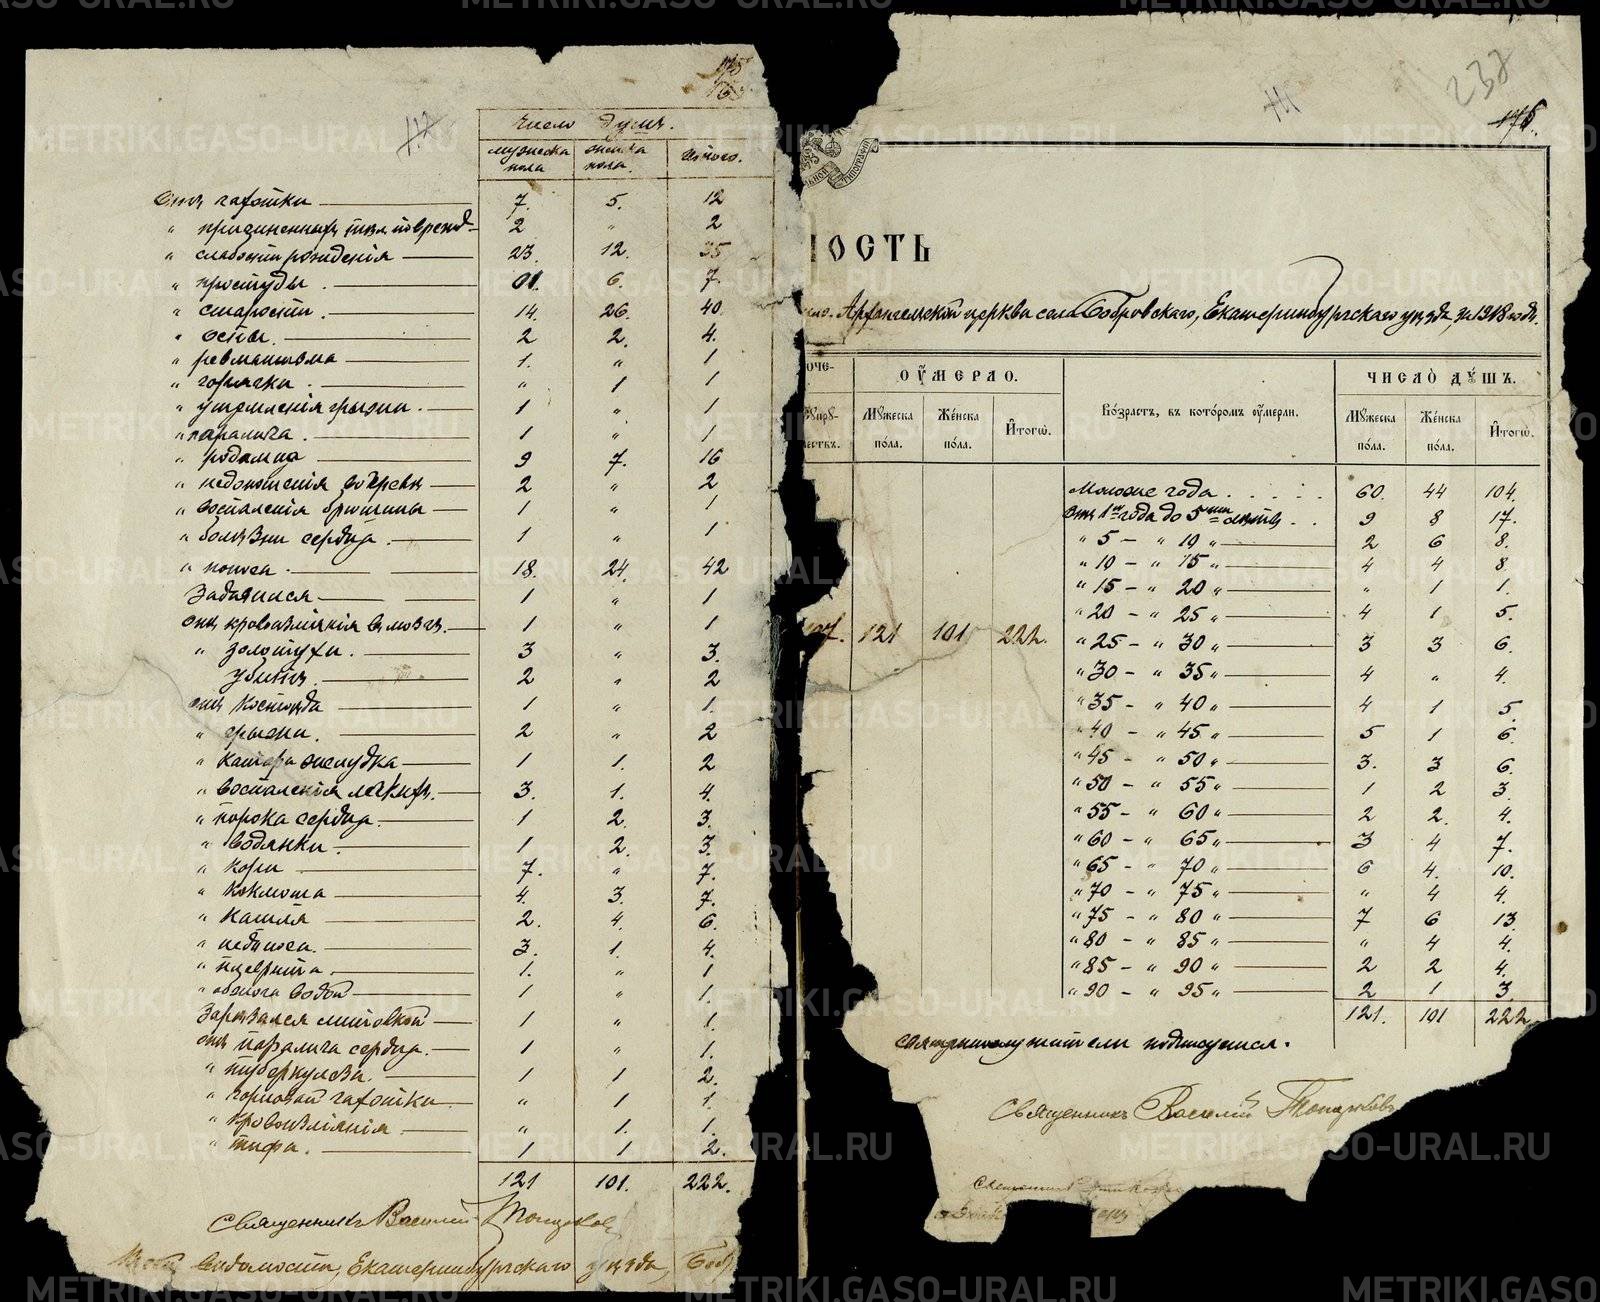 175
Число душъ.
мужеска пола | женска пола. | Итого.
Отъ чахотки — 7. 5. 12
" слабости рожденія — 23. 12. 35
" простуды. — 01. 6. 7.
" старости. — 14. 26. 40.
" оспы. — 2 2. 4.
" ревматизма — 1. " 1
" горячки. — " 1 1
" ущемленія грыжи. — 1 " 1
" паралича. — 1 " 1
" родимца — 9 7. 16
" воспаленія брюшины — 1 " 1
" болѣзни сердца. — 1 " 1
" поноса. — 18. 24. 42
Задавился — 1 " 1
отъ кровоизліянія въ мозгъ. — 1 " 1
" золотухи. — 3 " 3.
убитъ. — 2 " 2
" грыжи. — 2 " 2
" катара желудка — 1 1. 2
" воспаленія легкихъ. — 3. 1. 4.
" порока сердца. — 1 2. 3.
" водянки. — 1 2. 3.
" кори — 7. " 7.
" коклюша — 4. 3. 7.
" кашля — 2. 4. 6.
— 3. 1. 4.
" плеврита. — 1. " 1
— 1 " 1.
Зарѣзался литовкой — 1 " 1.
отъ паралича сердца. — 1 " 1.
" туберкулеза. — 1 1 2.
" горловой чахотки — " 1 1.
" кровоизліянія. — " 1. 1.
" тифа. — 1 1 2.
121 101. 222.
Священникъ Василій Топорковъ
вѣдомости, Екатеринбургскаго уѣзда, Боб
237
175.
ТИПОГРАФІИ
ОСТЬ
Архангельской церкви села Бобровскаго, Екатеринбургскаго уѣзда, за 1918 годъ.
ОУМЕРЛО. | ЧИСЛО ДУШЪ.
Мужеска пола. | Женска пола. | Итогѡ. | Возрастъ, въ которомъ оумерли. | Мужеска пола. | Женска пола. | Итогѡ.
121 101 222.
Моложе года . . . . . 60. 44 104.
Отъ 1го года до 5ти лѣтъ . . 9 8 17.
" 5 — " 10 " — 2 6 8.
" 10 — " 15 " — 4 4 8
" 15 — " 20 " — " 1 1.
" 20 — " 25 " — 4 1 5.
" 25 — " 30 " — 3 3 6.
" 30 — " 35 " — 4 " 4.
" 35 — " 40 " — 4 1 5.
" 40 — " 45 " — 5 1 6.
" 45 — " 50 " — 3. 3 6.
" 50 — " 55 " — 1 2 3.
" 55 — " 60 " — 2 2. 4.
" 60 — " 65 " — 3 4 7.
" 65 — " 70 " — 6 4. 10.
" 70 — " 75 " — " 4 4.
" 75 — " 80 " — 7 6 13.
" 80 — " 85 " — " 4 4.
" 85 — " 90 " — 2 2 4.
" 90 — " 95 " — 2 1 3.
121. 101 222
священнослужители подписуемся.
Священникъ Василій Топорковъ
METRIKI.GASO-URAL.RU